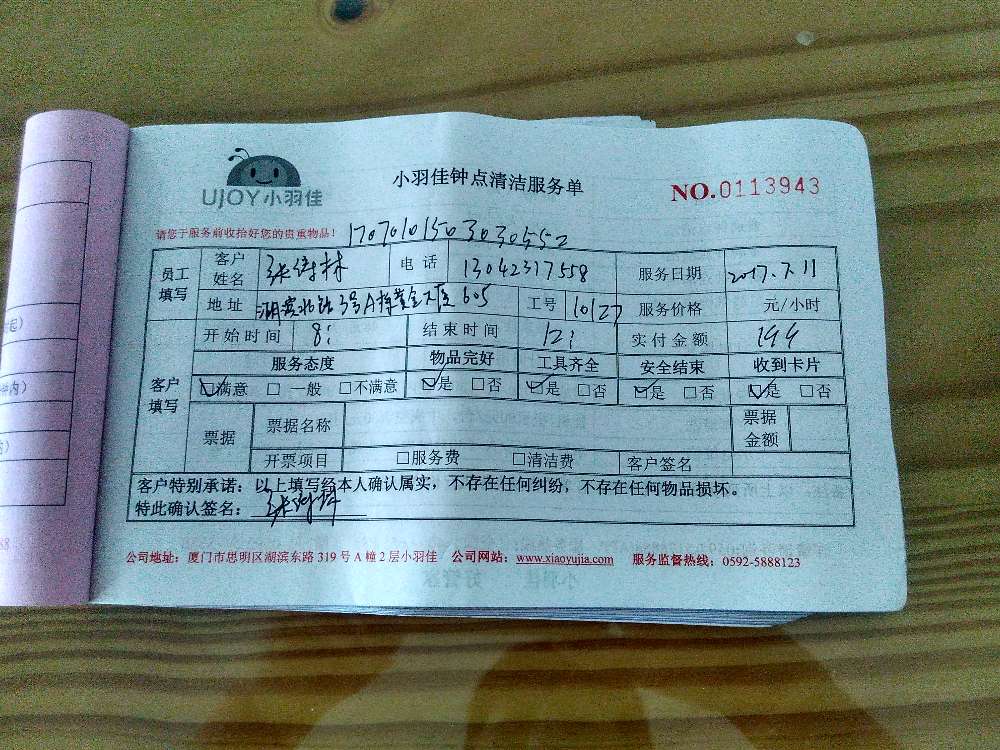 UJOY小羽佳
小羽佳钟点清洁服务单
NO.0113943
请您于服务前收拾好您的贵重物品！ 17070101503030552
员工填写 客户姓名 张 林 电话 13042317558 服务日期 2017.7.11
地址 湖滨北路3号A栋黄金大厦605 工号 10127 服务价格 元/小时
开始时间 8: 结束时间 12: 实付金额 144
客户填写 服务态度 物品完好 工具齐全 安全结束 收到卡片
☑满意 □一般 □不满意 ☑是 □否 ☑是 □否 ☑是 □否 ☑是 □否
票据 票据名称 票据金额
开票项目 □服务费 □清洁费 客户签名
客户特别承诺：以上填写经本人确认属实，不存在任何纠纷，不存在任何物品损坏。
特此确认签名：
公司地址：厦门市思明区湖滨东路319号A幢2层小羽佳 公司网站：www.xiaoyujia.com 服务监督热线：0592-5888123